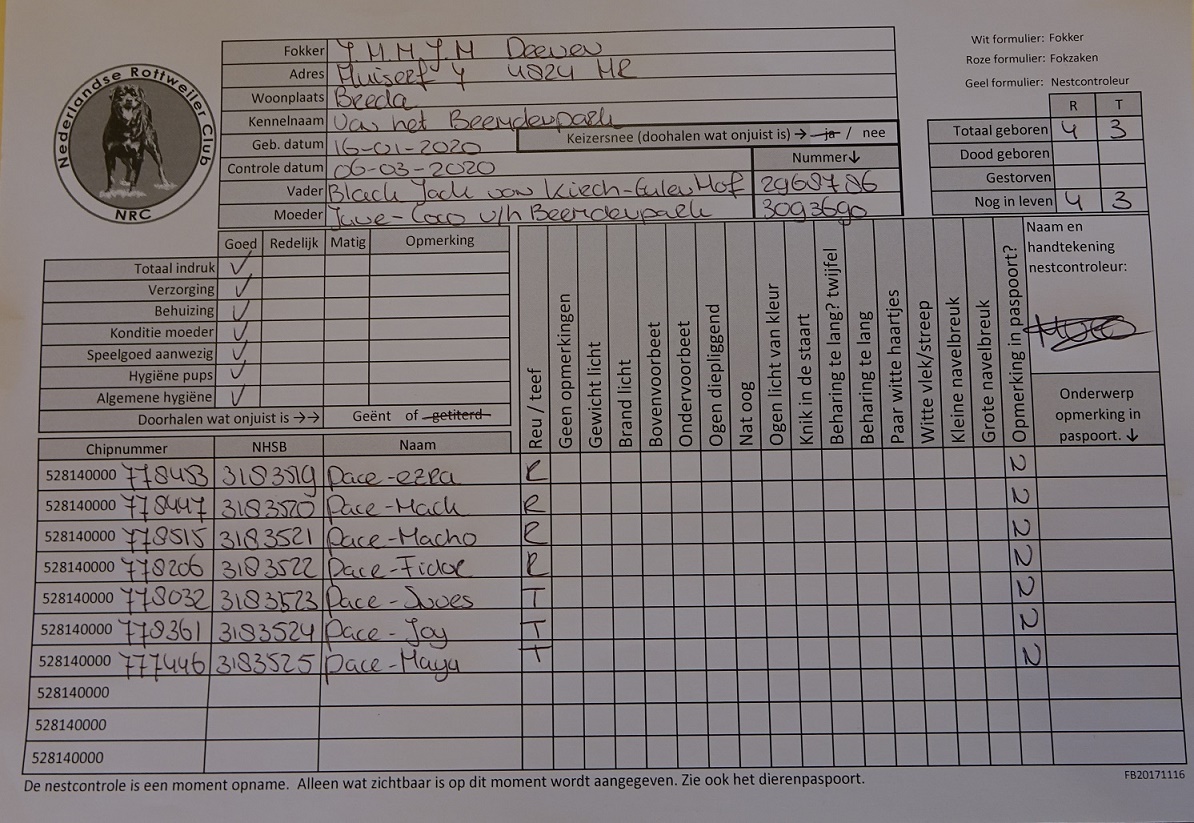 Nederlandse Rottweiler Club
NRC
Fokker J.M.M.J.M Deeven
Adres Muiserf 4 4824 MR
Woonplaats Breda
Kennelnaam Van het Beerndenpark
Geb. datum 16-01-2020 Keizersnee (doohalen wat onjuist is) → ja / nee
Controle datum 06-03-2020 Nummer↓
Vader Black Jack von Kirch-Eulen Hof 2968786
Moeder Jave-Coco v/h Beerndenpark 3093690
Wit formulier: Fokker
Roze formulier: Fokzaken
Geel formulier: Nestcontroleur
R T
Totaal geboren 4 3
Dood geboren
Gestorven
Nog in leven 4 3
Goed Redelijk Matig Opmerking
Totaal indruk ✓
Verzorging ✓
Behuizing ✓
Konditie moeder ✓
Speelgoed aanwezig ✓
Hygiëne pups ✓
Algemene hygiëne ✓
Doorhalen wat onjuist is →→ Geënt of getiterd
Naam en
handtekening
nestcontroleur:
Onderwerp
opmerking in
paspoort. ↓
Reu / teef
Geen opmerkingen
Gewicht licht
Brand licht
Bovenvoorbeet
Ondervoorbeet
Ogen diepliggend
Nat oog
Ogen licht van kleur
Knik in de staart
Beharing te lang? twijfel
Beharing te lang
Paar witte haartjes
Witte vlek/streep
Kleine navelbreuk
Grote navelbreuk
Opmerking in paspoort?
Chipnummer NHSB Naam
528140000 778453 3183519 Pace-ezra R 2
528140000 778447 3183520 Pace-Mack R 2
528140000 778515 3183521 Pace-Macho R 2
528140000 778206 3183522 Pace-Fidor R 2
528140000 778032 3183523 Pace- T 2
528140000 778361 3183524 Pace-Joy T 2
528140000 777446 3183525 Pace-Maya T 2
528140000
528140000
528140000
De nestcontrole is een moment opname. Alleen wat zichtbaar is op dit moment wordt aangegeven. Zie ook het dierenpaspoort.
FB20171116